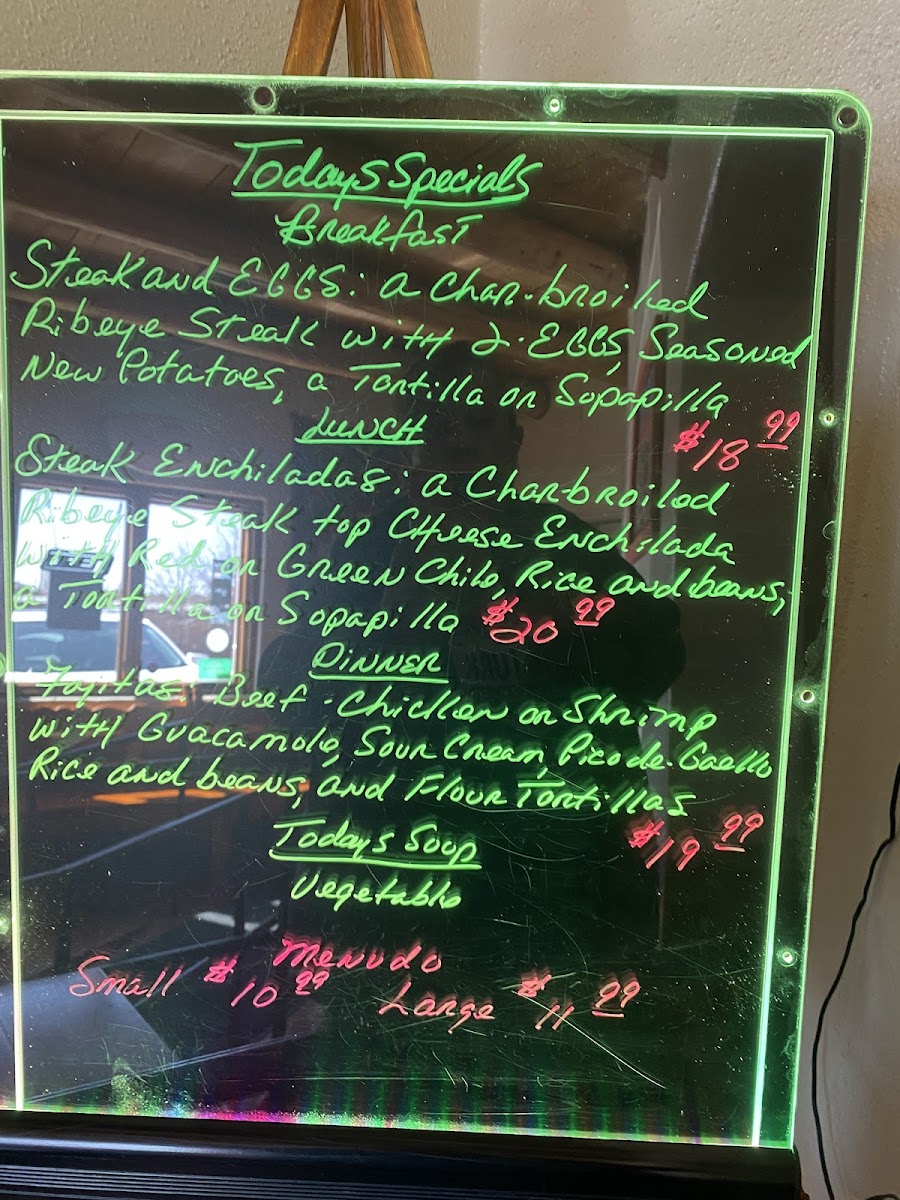 Todays Specials
Breakfast
Steak and EGGS: a Char-broiled
Ribeye Steak with 2-EGGS, Seasoned
New Potatoes, a Tortilla or Sopapilla
$18.99
LUNCH
Steak Enchiladas: a Charbroiled
Ribeye Steak top Cheese Enchilada
with Red or Green Chile, Rice and beans,
a Tortilla or Sopapilla $20 99
DINNER
Fajitas: Beef - Chicken or Shrimp
with Guacamole, Sour Cream, Pico de-Gaello
Rice and beans, and Flour Tortillas
$19 99
Todays Soup
Vegetable
Menudo
Small $10 99 Large $11 99